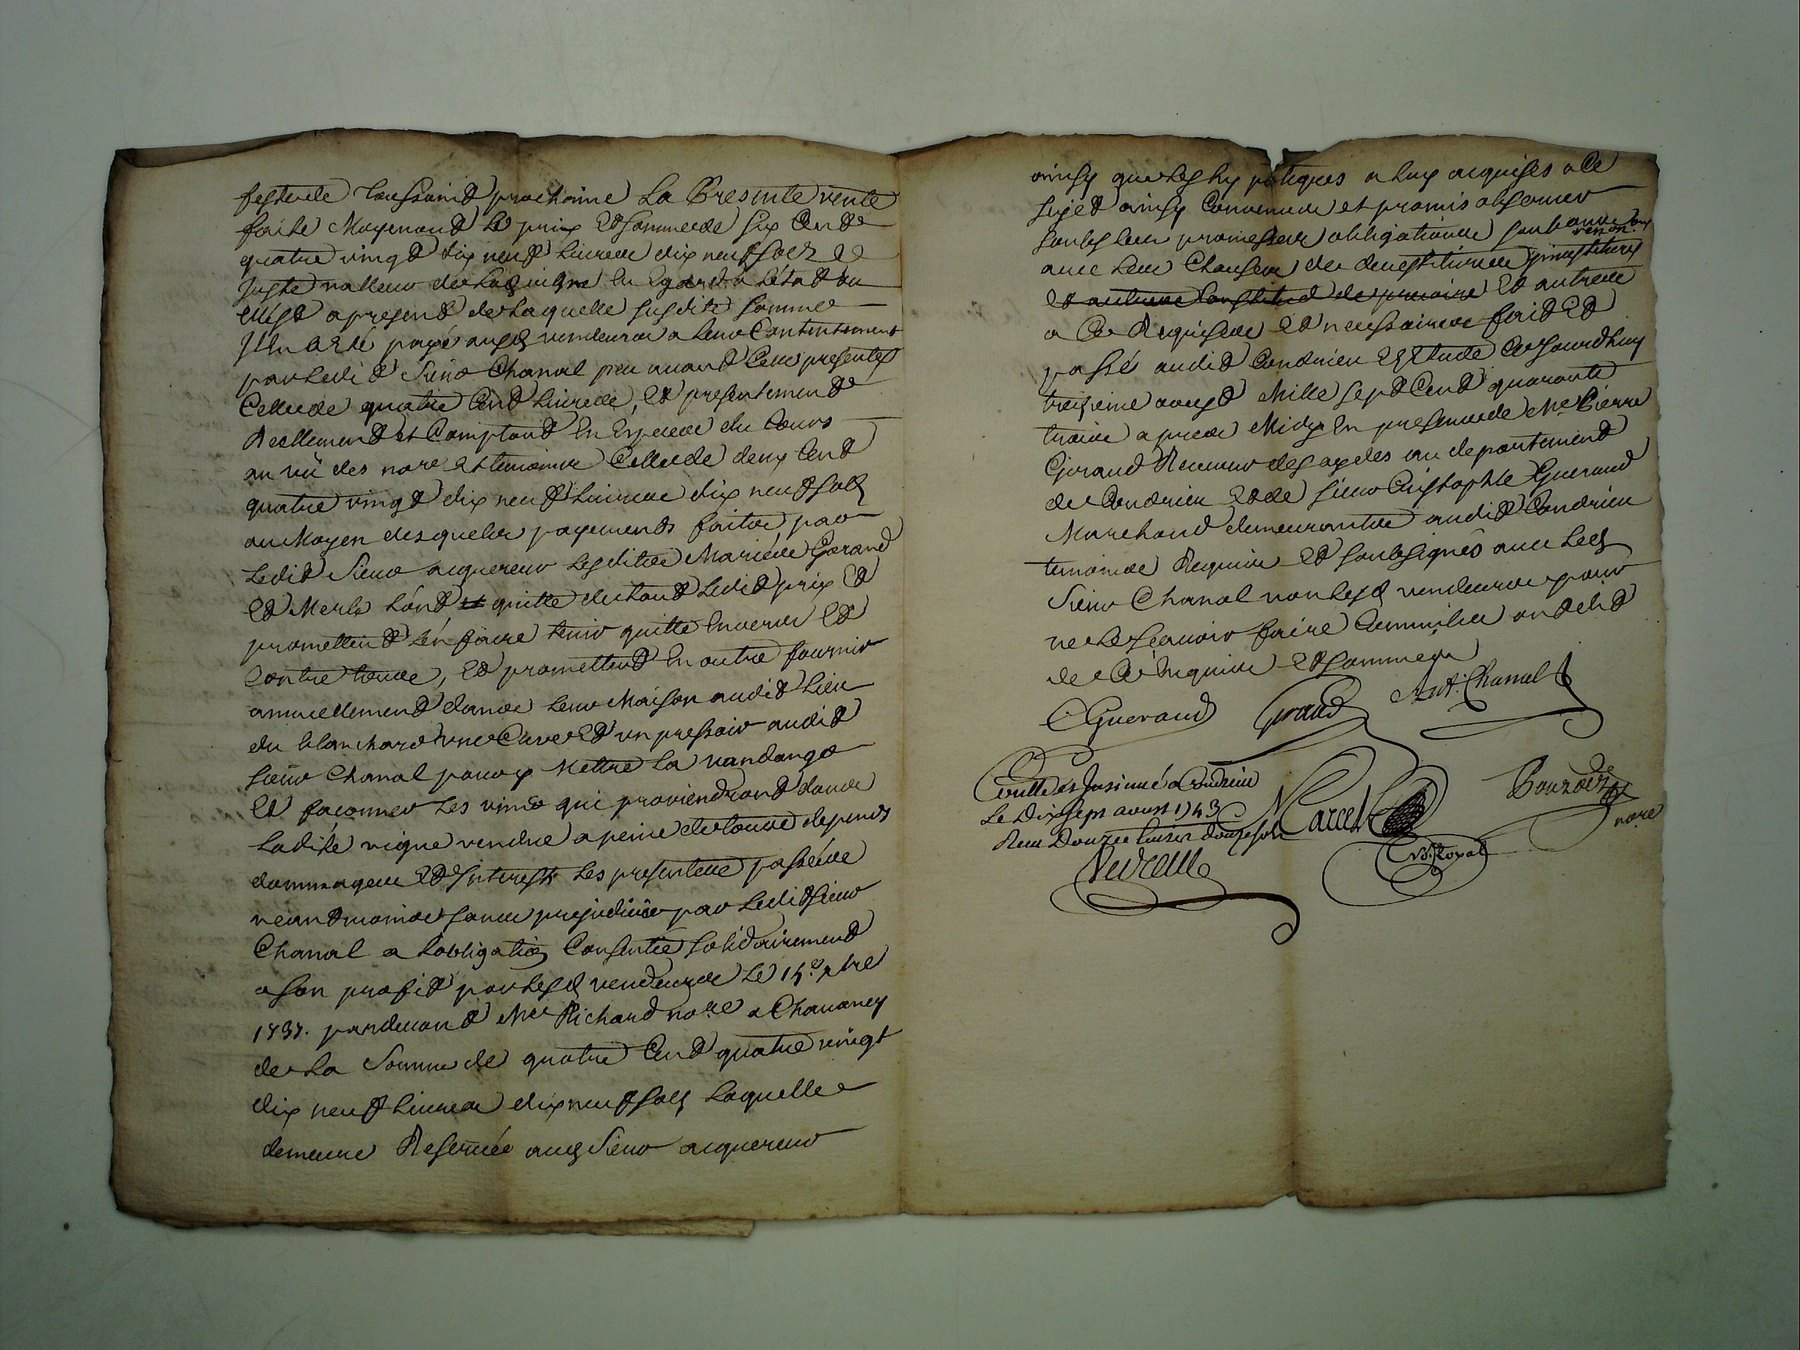 feste de Toussaind prochaine La Presente vente
faite Moyenand Le prix Et somme de six Cend
quatre vingt dix neuf Livres dix neuf sols
Juste valleur de La vigne En Egard a L'état ou
elle Est apresend de Laquelle susdite somme
Il En a Eté payé auxd vendeurs a Leur Contentement
par Ledit Sieur Chanal peu avand Ces presentes
Celle de quatre Cend Livres, Et presentement
Reellement et Comptand En Espece du Cours
au vû des nore Et temoins Celle de deux Cend
quatre vingt dix neuf Livres dix neuf sols
au Moyen desquels payements faits par
Ledit Sieur acquereur Lesdites Mariés Gerand
Et Merle L'ond quitté de toud Ledit prix Et
promettend L'en faire tenir quitte Envers Et
Contre tous, Et promettend En outre fournir
annuellement dans Leur Maison audit Lieu
du blanchard une Cuve Et un pressoir audit
sieur Chanal pour y Mettre La vandange
Et façonner Les vins qui proviendrond dans
Ladite vigne vendue a peine de tous depends
dommages Et Interests Les presentes passées
neandmoins sans prejudice par Ledit sieur
Chanal a L'obligation Consentie solidairement
a son profit par Lesd vendeurs Le 15e xbre
1737. pardevand Me Richard nore a Chavaney
de La Somme de quatre Cend quatre vingt
dix neuf Livres dix neuf sols Laquelle
demeure Reservée aud Sieur acquereur
ainsy que Les hypotiques a Luy acquises a Ce
sujet ainsy Convenu et promis observer
sous Les Leur promesses obligations soubmissions
renon.
avec Leur Clauses de devestitures investitures
Et autres Constitud de precaire Et autres
a Ce Requises Et necessaires fait Et
passé audit Condrieu Estude Ce Jourdhuy
treizieme aoust Mille sept Cend quarante
trois apres Midy En presence de Me Pierre
Gerand Receveur des aydes au departement
de Condrieu Et de sieur Cristophle Guerand
Marchand demeurants audit Condrieu
temoins Requis Et soubsignés avec Led
Sieur Chanal non Lesd vendeurs pour
ne Le sçavoir faire Comme ils ont dit
de Ce Enquis Et sommés
C Guerand Gerand Ant. Chanal
Conttlé et Insinué a Condrieu
Le Dix sept aoust 1743
Receu Douze Livres douze sols
Marcel
Nore Royal
nore